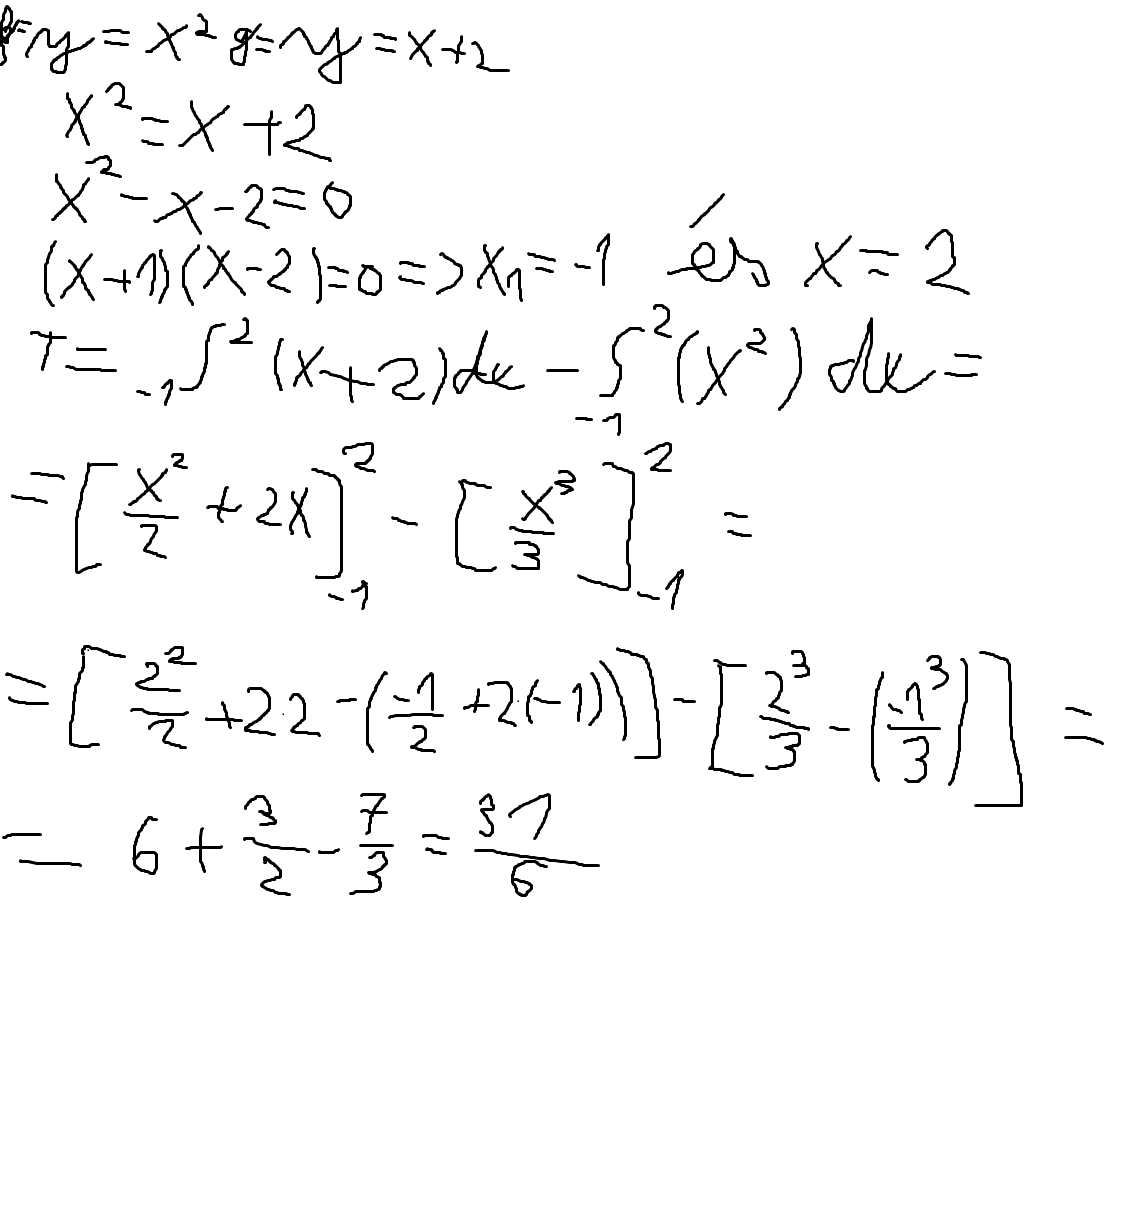 f=y=x² g=y=x+2
x²=x+2
x²-x-2=0
(x+1)(x-2)=0=>x₁=-1 és x=2
T= ₋₁∫² (x+2)dx - ∫₋₁² (x²) dx=
=[x²/2 + 2x]₋₁² - [x³/3]₋₁² =
=[2²/2+2·2-(-1/2+2·(-1))]-[2³/3-(-1³/3)] =
= 6+3/2-7/3=31/6